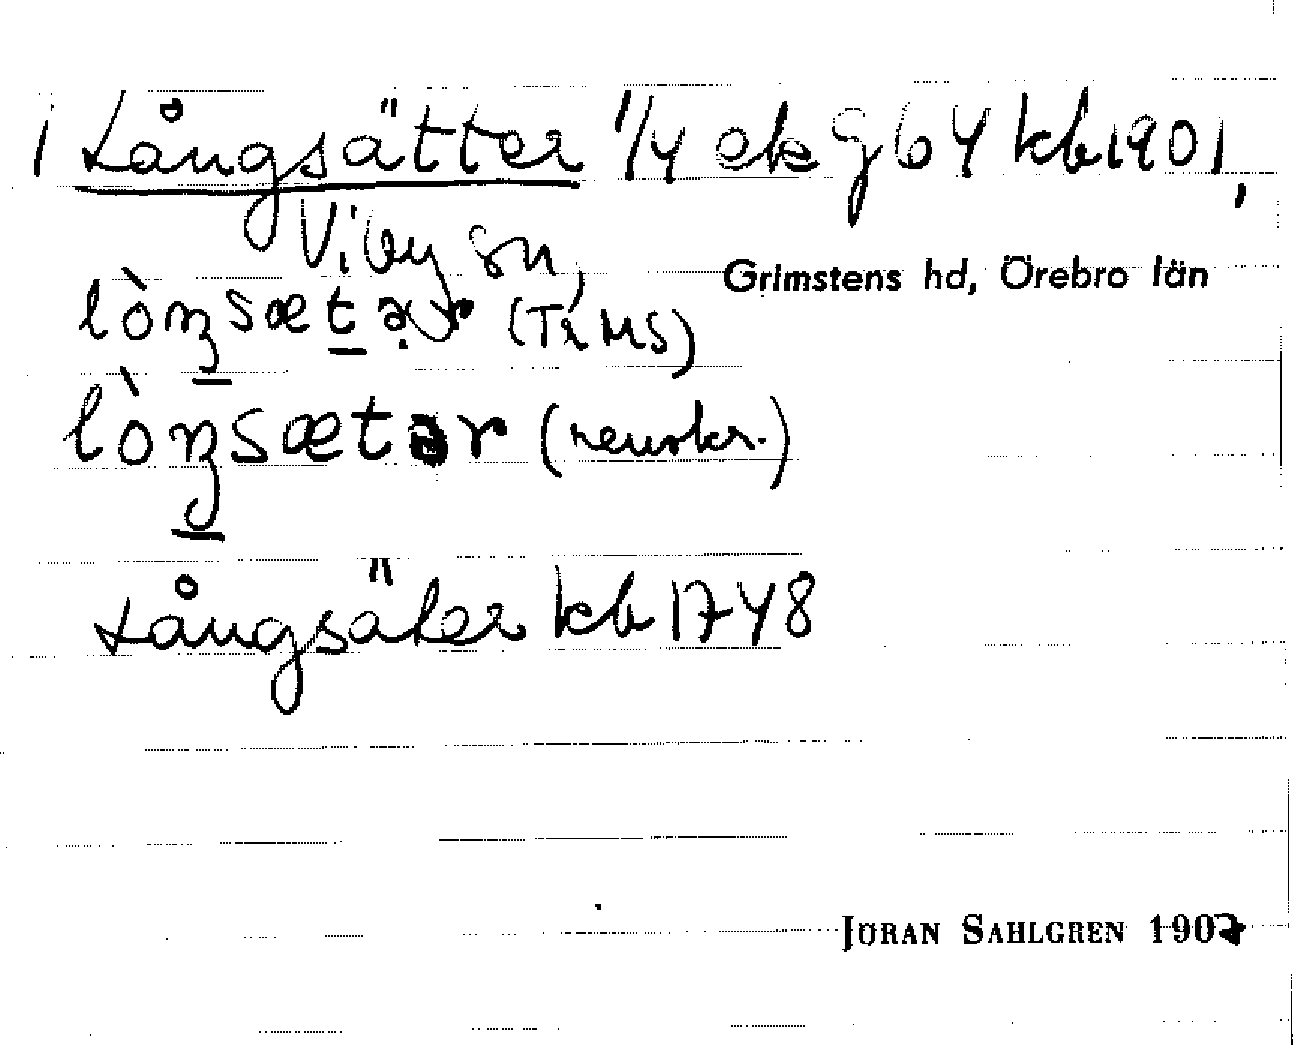 1 Långsätter 1/4 ek g 64 kb 1901,
Viby sn,
Grimstens hd, Örebro län
lòŋsætər (TXMS)
lòŋsætər (renskr.)
Långsäter kb 1748
JÖRAN SAHLGREN 1907